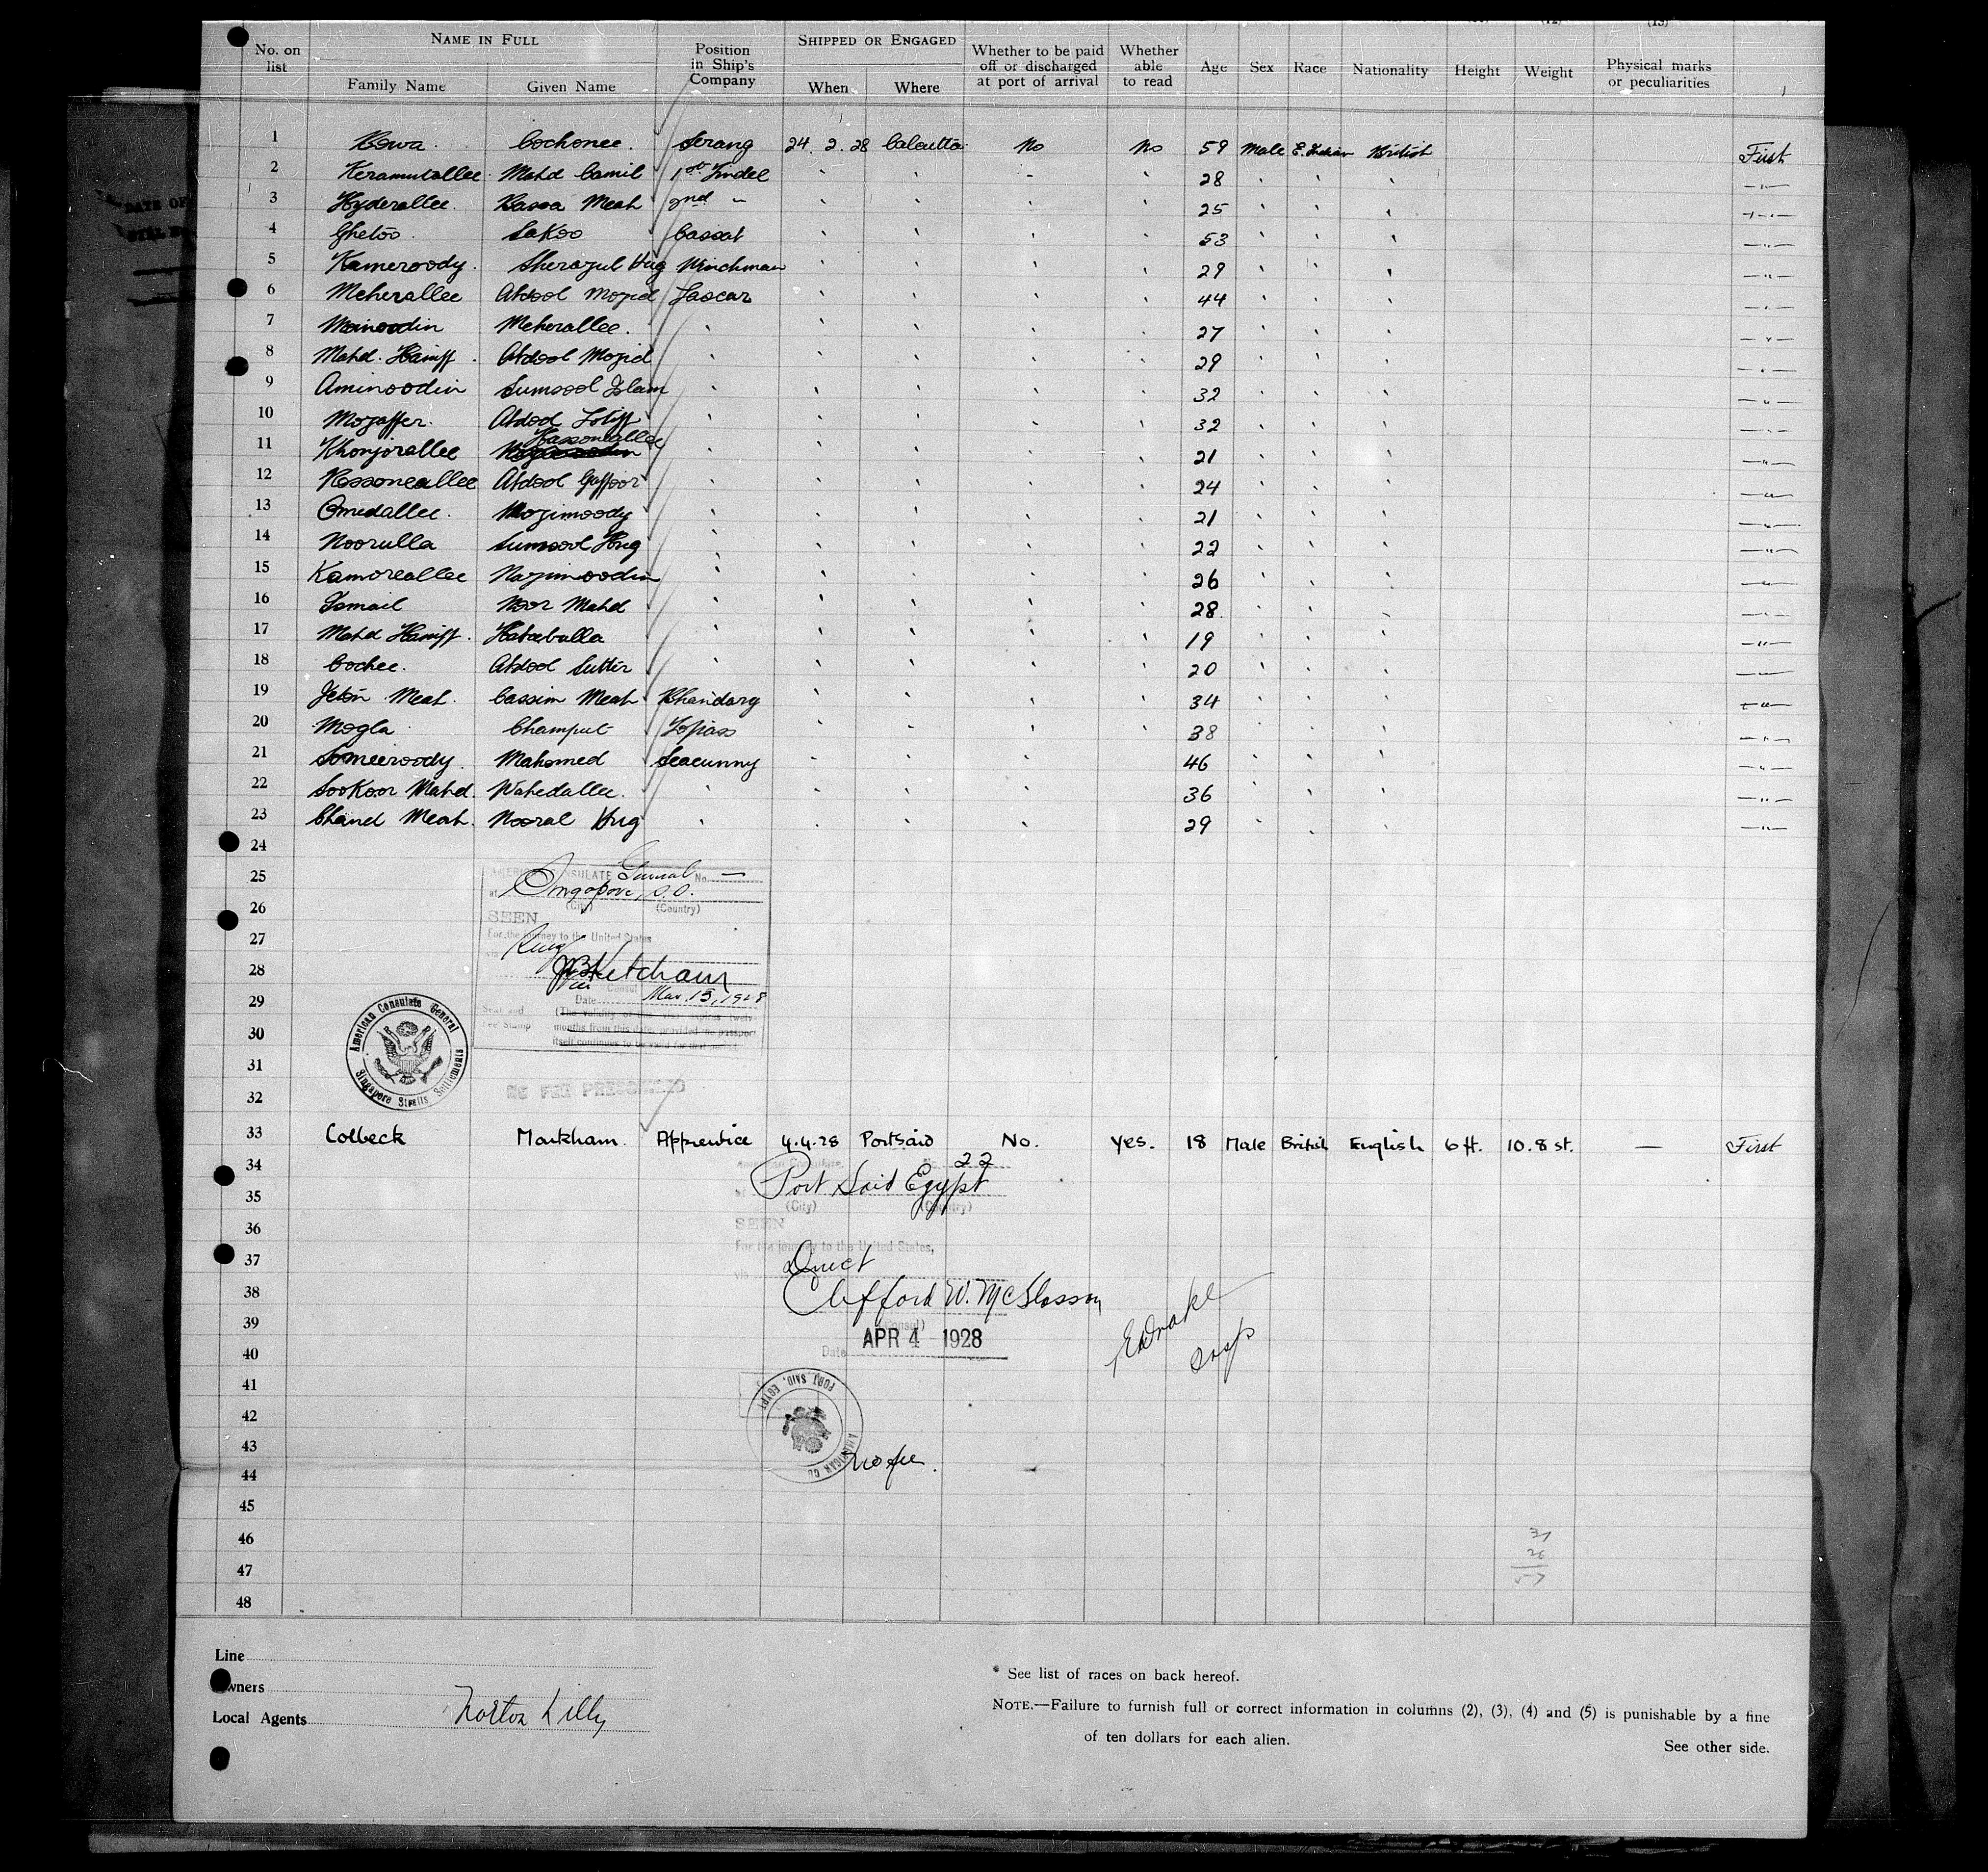 (12) (13)
No. on list NAME IN FULL Position in Ship's Company SHIPPED OR ENGAGED Whether to be paid off or discharged at port of arrival Whether able to read Age Sex Race Nationality Height Weight Physical marks or peculiarities
Family Name Given Name When Where
1 Bowa Cochonee Serang 24.2.28 Calcutta No No 59 Male E. Indian British First
2 Keramutallee Mahd Camil 1st Tindel 28
3 Hyderallee Bassa Meah 2nd " 25
4 Ghetoo Sakoo Cassab 53
5 Kameroody Sherazul Hug Winchman 29
6 Meherallee Abdool Mozid Lascar 44
7 Mainoodin Meherallee 27
8 Mahd. Haniff Abdool Mozid 29
9 Aminoodin Sumsool Islam 32
10 Mozaffer Abdool Lotiff 32
11 Khonjorallee Hassoneallee 21
12 Hossoneallee Abdool Gaffoor 24
13 Omedallee Mozimoody 21
14 Noorulla Sumsool Hug 22
15 Kamoreallee Nazimoodin 26
16 Ismail Noor Mahd 28
17 Mahd Haniff Hatabulla 19
18 Cochee Abdool Sutter 20
19 Jeton Meah Cassim Meah Bhandary 34
20 Mogla Champut Topass 38
21 Someeroody Mahomed Seacunny 46
22 Sookoor Mahd. Wahedallee 36
23 Chand Meah Nooral Hug 29
24
25 CONSULATE General No. —
at Singapore, S.S.
26 (City) (Country)
SEEN
27 For the journey to the United States
28 Ketcham
Vice Consul
29 Date Mar. 15, 1928
Seal and Fee Stamp
30 months from this date, provided the passport
itself continues to be valid for that
American Consulate General Singapore Straits Settlements
31
32 NO FEE PRESCRIBED
33 Colbeck Markham Apprentice 4.4.28 Portsaid No. Yes. 18 Male British English 6 ft. 10.8 st. — First
34 American Consulate, No. 22
at Port Said Egypt
35 (City) (Country)
36 SEEN
37 For the journey to the United States,
via Direct
38 Clifford W. McGlasson
39 (Consul)
Date APR 4 1928
40 EDrake
41 PORT SAID, EGYPT
42
43 AMERICAN CO
44 no fee.
45
46 31
47 26
57
48
Line
Owners
Local Agents Norton Lilly
* See list of races on back hereof.
NOTE.—Failure to furnish full or correct information in columns (2), (3), (4) and (5) is punishable by a fine
of ten dollars for each alien.
See other side.